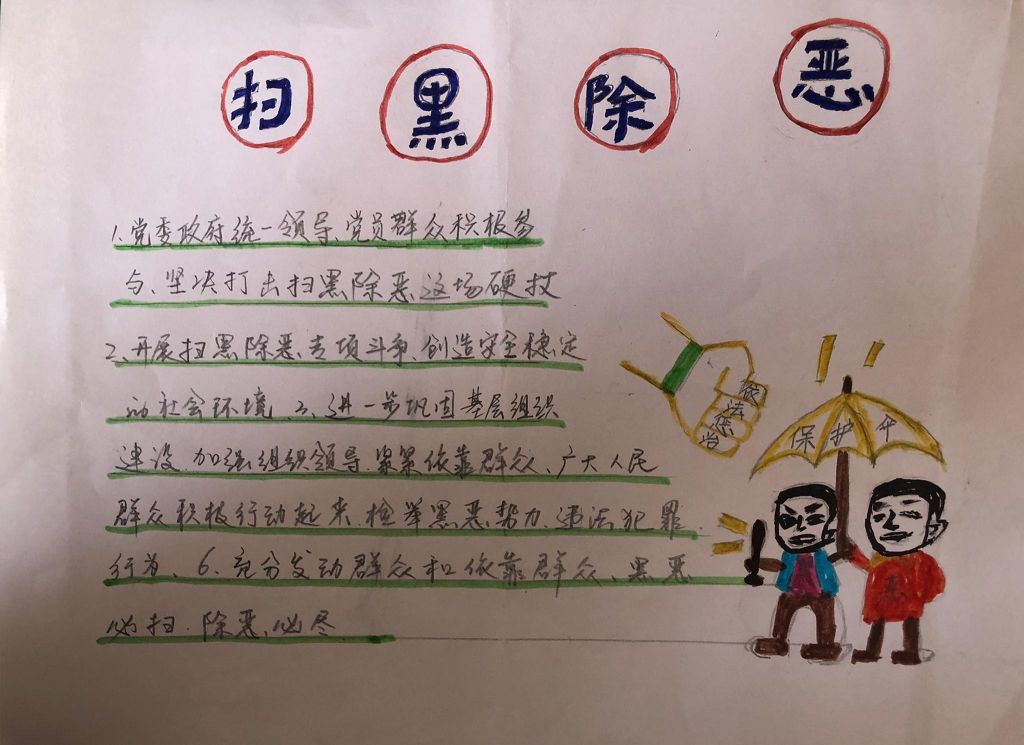 扫黑除恶
1、党委政府统一领导、党员群众积极参
与、坚决打击扫黑除恶这场硬仗
2、开展扫黑除恶专项斗争、创造安全稳定
的社会环境、3、进一步巩固基层组织
建设、加强组织领导、紧紧依靠群众、广大人民
群众积极行动起来、检举黑恶势力、违法犯罪
行为、6、充分发动群众和依靠群众、黑恶
必扫、除恶、必尽
依法惩治
保护伞
恶